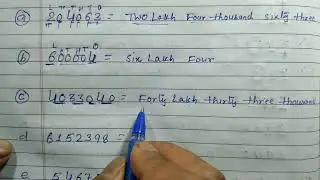 L T T H T O
(a) 204063 = Two Lakh Four thousand sixty three
L T T H T O
(b) 600004 = six Lakh Four
(c) 4033040 = Forty Lakh thirty three thousand
d 6152398 =
e